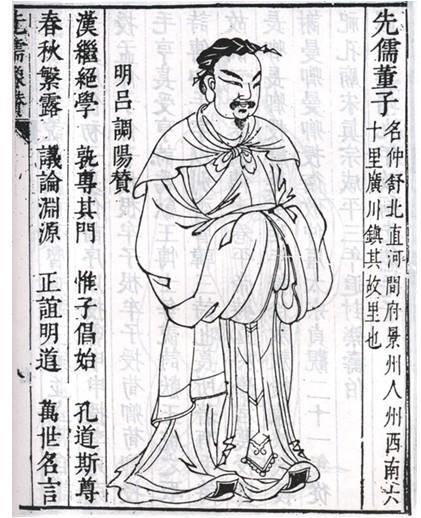 先儒董子
名仲舒北直河間府景州人州西南六
十里廣川鎮其故里也
明呂調陽贊
漢繼絕學 孰專其門 惟子倡始 孔道斯尊
春秋繁露 議論淵源 正誼明道 萬世名言